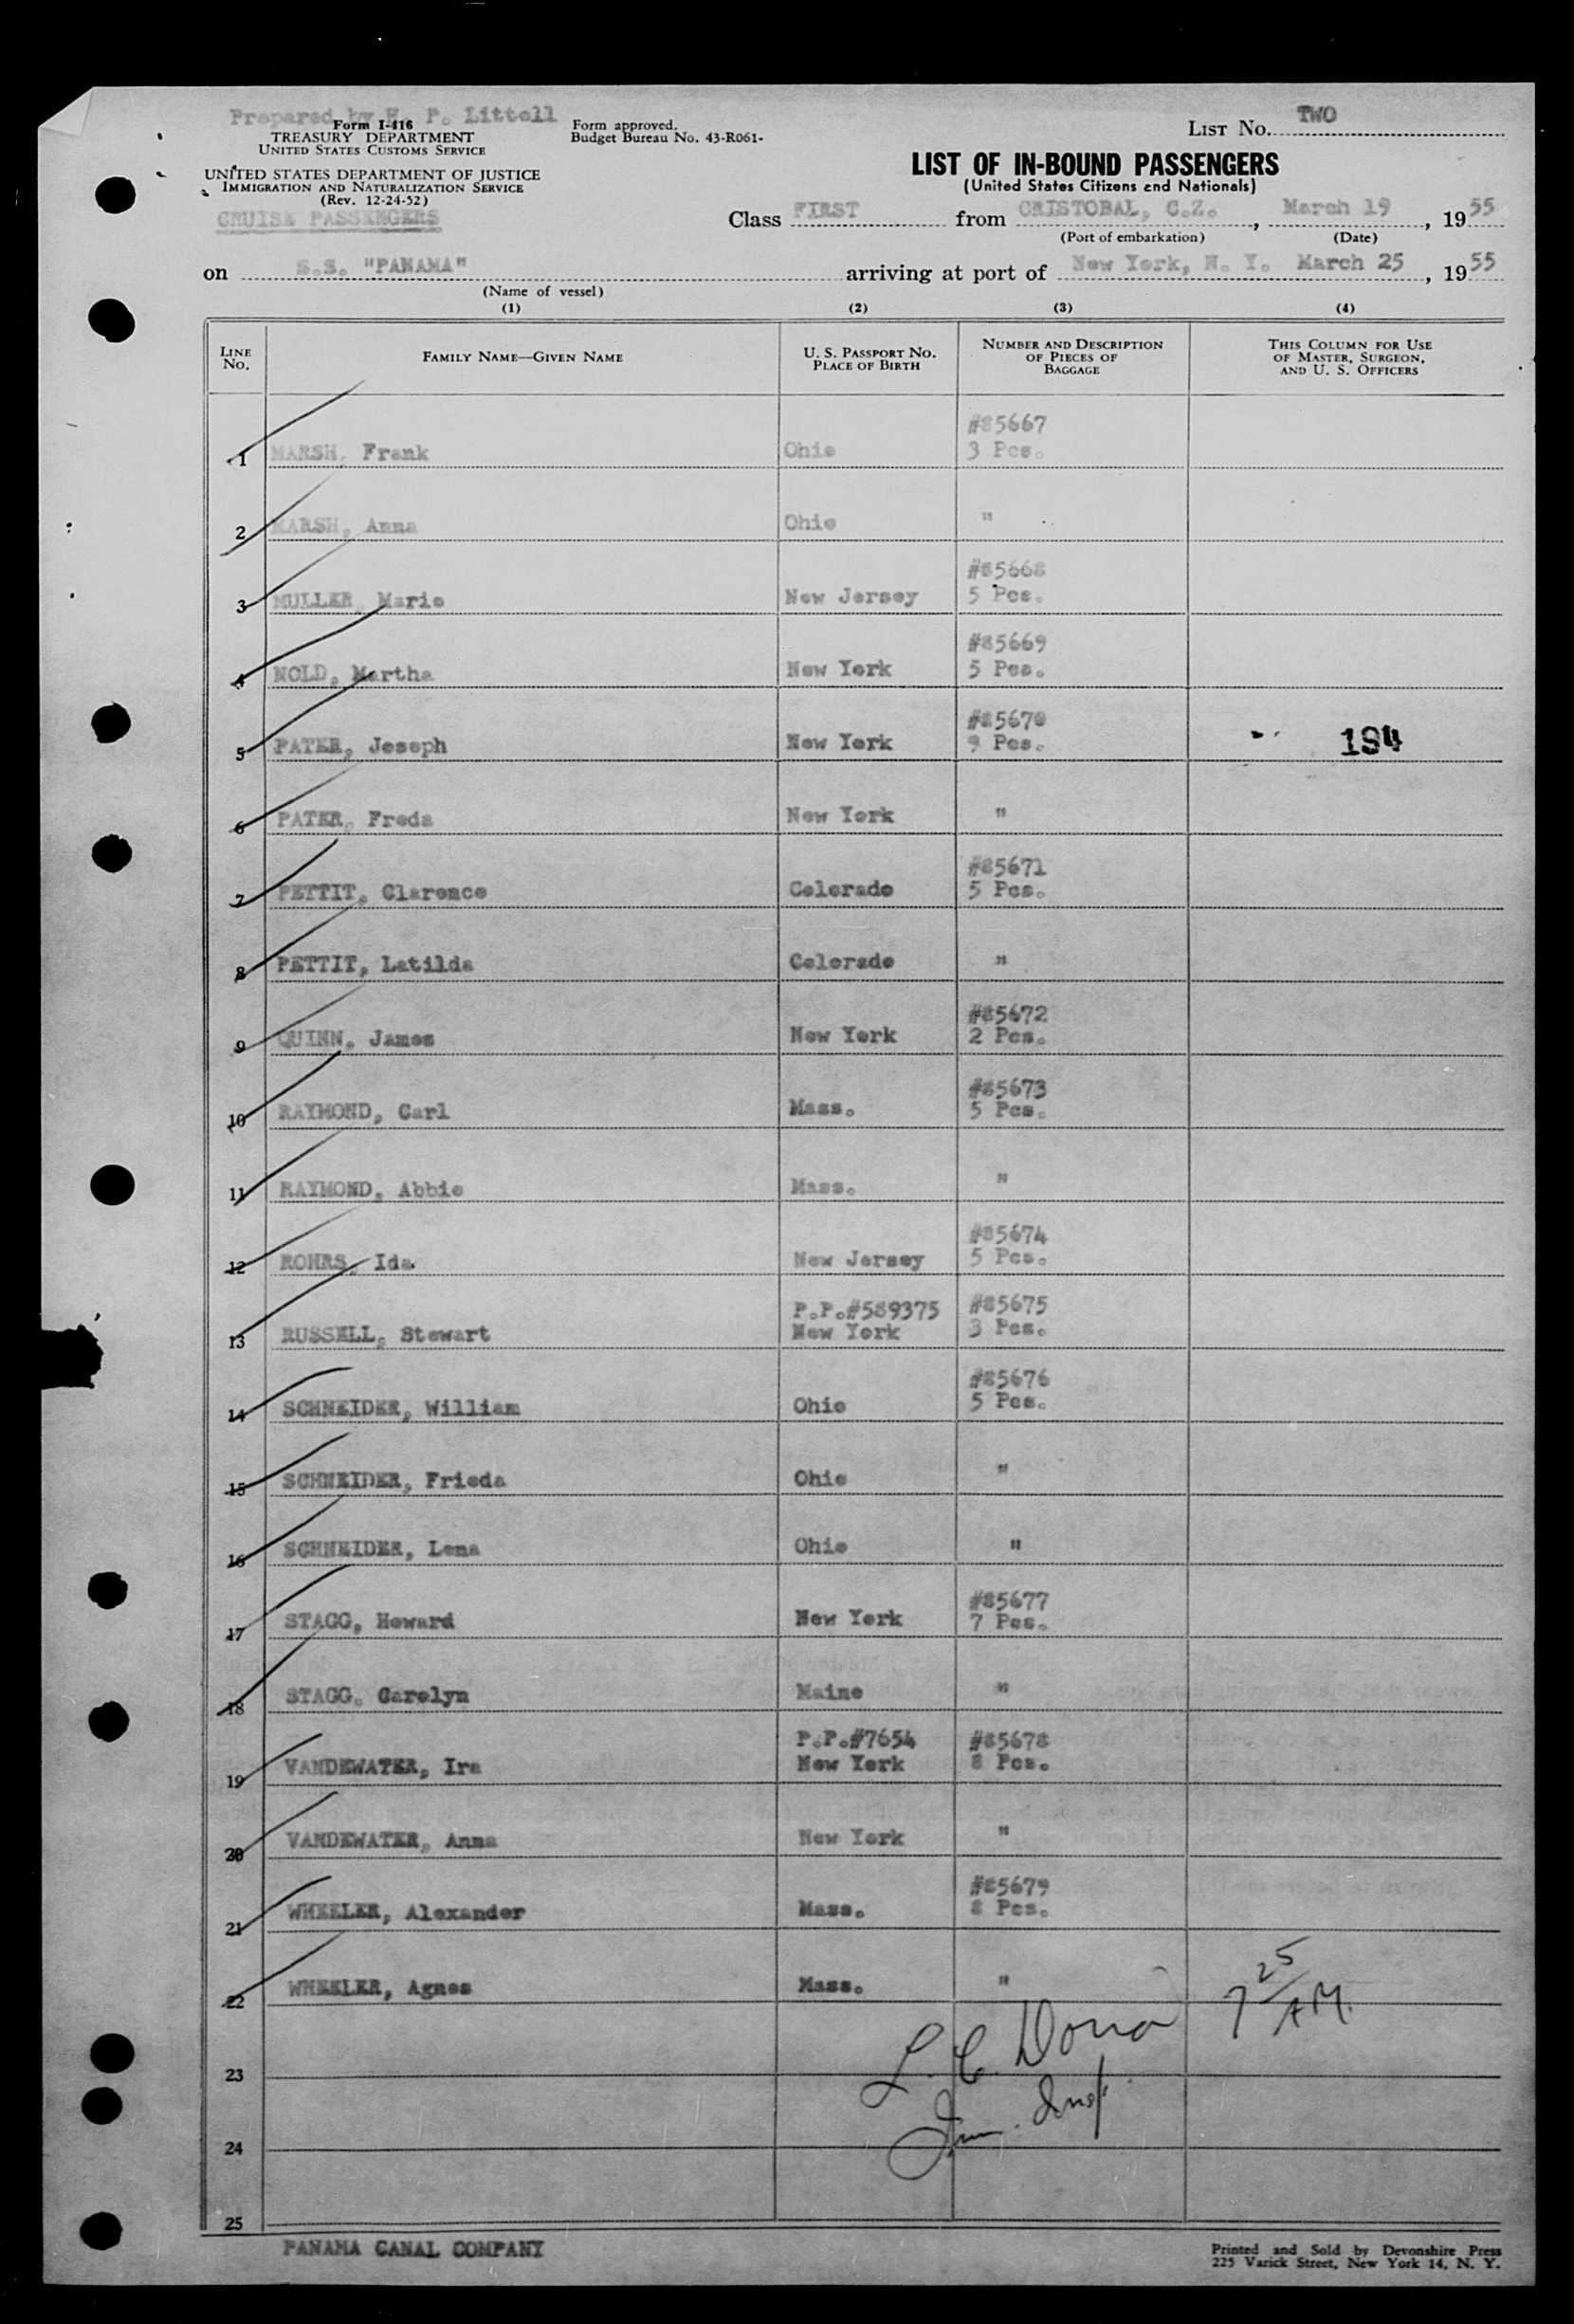 Prepared by H. P. Littell
Form I-416
TREASURY DEPARTMENT
UNITED STATES CUSTOMS SERVICE
UNITED STATES DEPARTMENT OF JUSTICE
IMMIGRATION AND NATURALIZATION SERVICE
(Rev. 12-24-52)
CRUISE PASSENGERS
Form approved.
Budget Bureau No. 43-R061-
LIST No. TWO
LIST OF IN-BOUND PASSENGERS
(United States Citizens and Nationals)
Class FIRST from CRISTOBAL, C.Z., March 19, 1955
(Port of embarkation) (Date)
on S.S. "PANAMA" arriving at port of New York, N. Y. March 25, 1955
(Name of vessel)
(1) (2) (3) (4)
LINE No. FAMILY NAME—GIVEN NAME U. S. PASSPORT NO. PLACE OF BIRTH NUMBER AND DESCRIPTION OF PIECES OF BAGGAGE THIS COLUMN FOR USE OF MASTER, SURGEON, AND U. S. OFFICERS
#85667
1 MARSH, Frank Ohio 3 Pcs.
2 MARSH, Anna Ohio "
#85668
3 MULLER, Marie New Jersey 5 Pcs.
#85669
4 NOLD, Martha New York 5 Pcs.
#85670
5 PATER, Joseph New York 9 Pcs. 194
6 PATER, Freda New York "
#85671
7 PETTIT, Clarence Colorado 5 Pcs.
8 PETTIT, Latilda Colorado "
#85672
9 QUINN, James New York 2 Pcs.
#85673
10 RAYMOND, Carl Mass. 5 Pcs.
11 RAYMOND, Abbie Mass. "
#85674
12 ROHRS, Ida New Jersey 5 Pcs.
P.P.#589375 #85675
13 RUSSELL, Stewart New York 3 Pcs.
#85676
14 SCHNEIDER, William Ohio 5 Pcs.
15 SCHNEIDER, Frieda Ohio "
16 SCHNEIDER, Lena Ohio "
#85677
17 STAGG, Howard New York 7 Pcs.
18 STAGG, Carolyn Maine "
P.P.#7654 #85678
19 VANDEWATER, Ira New York 8 Pcs.
20 VANDEWATER, Anna New York "
#85679
21 WHEELER, Alexander Mass. 8 Pcs.
22 WHEELER, Agnes Mass. "
7 25 AM.
L. C. Dona
23
Imm. Insp.
24
25
PANAMA CANAL COMPANY
Printed and Sold by Devonshire Press
225 Varick Street, New York 14, N. Y.